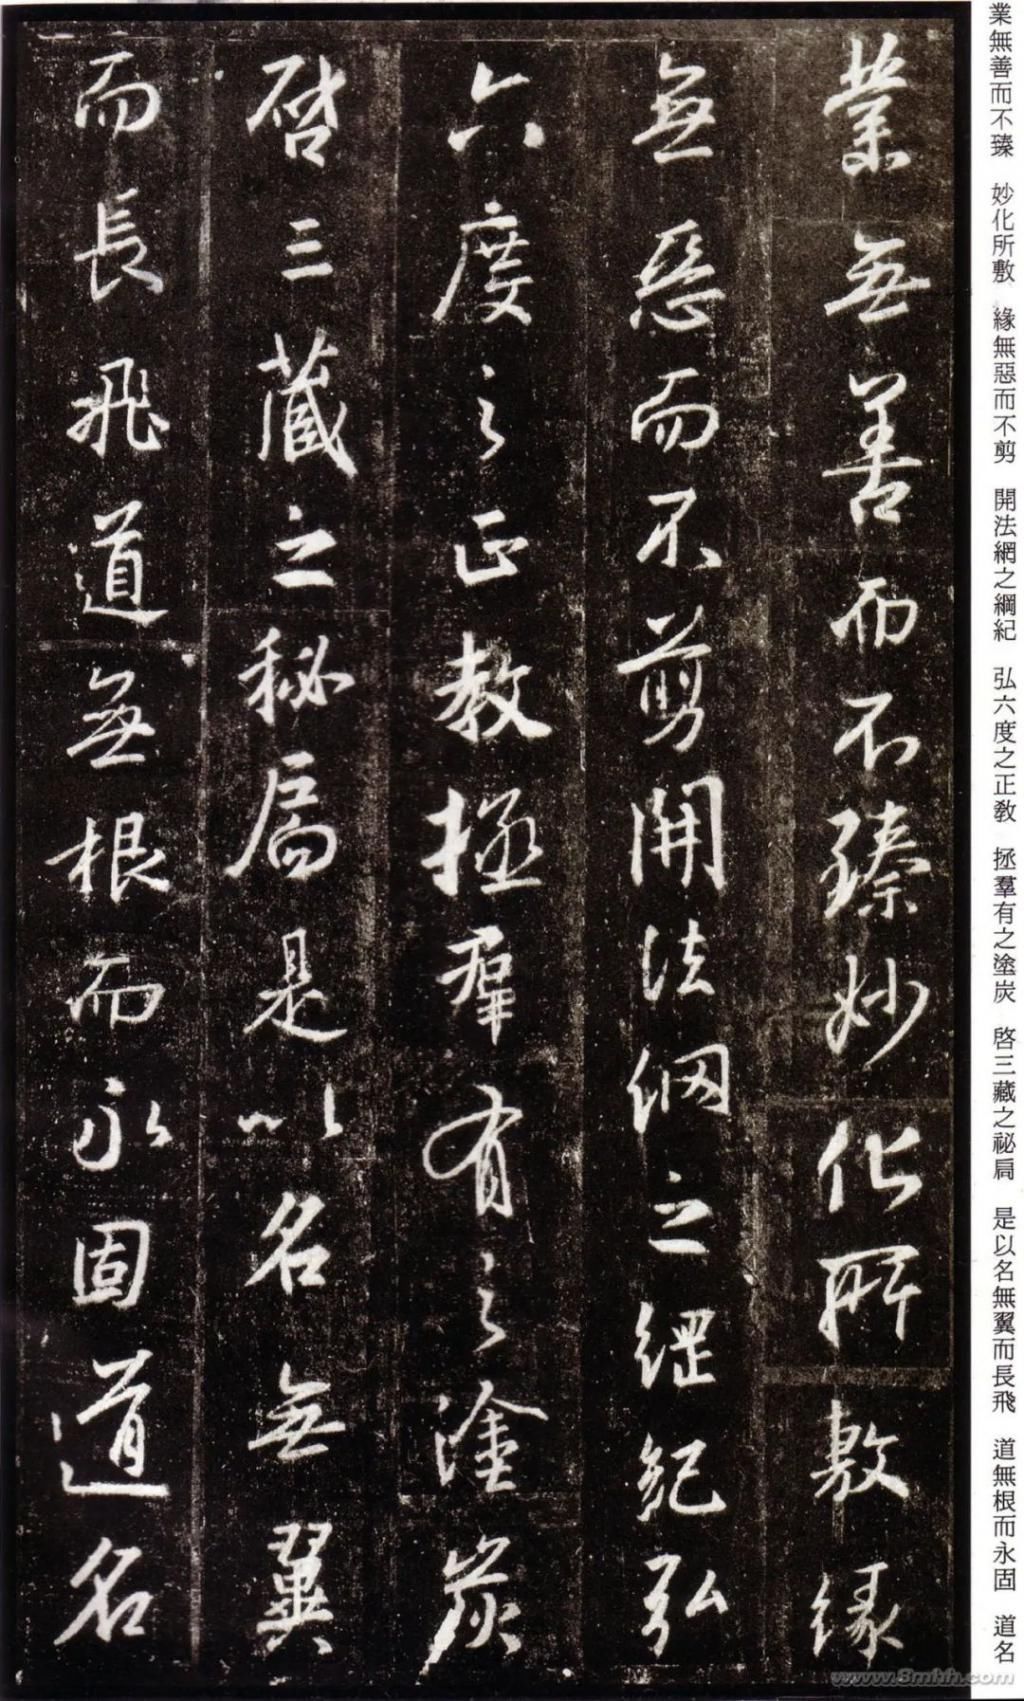 業無善而不臻　妙化所敷　緣無惡而不剪　開法網之綱紀　弘六度之正教　拯羣有之塗炭　啓三藏之祕扃　是以名無翼而長飛　道無根而永固　道名
業無善而不臻妙化所敷緣
無惡而不剪開法網之綱紀弘
六度之正教拯羣有之塗炭
啓三藏之秘扃是以名無翼
而長飛道無根而永固道名
www.8mhh.com